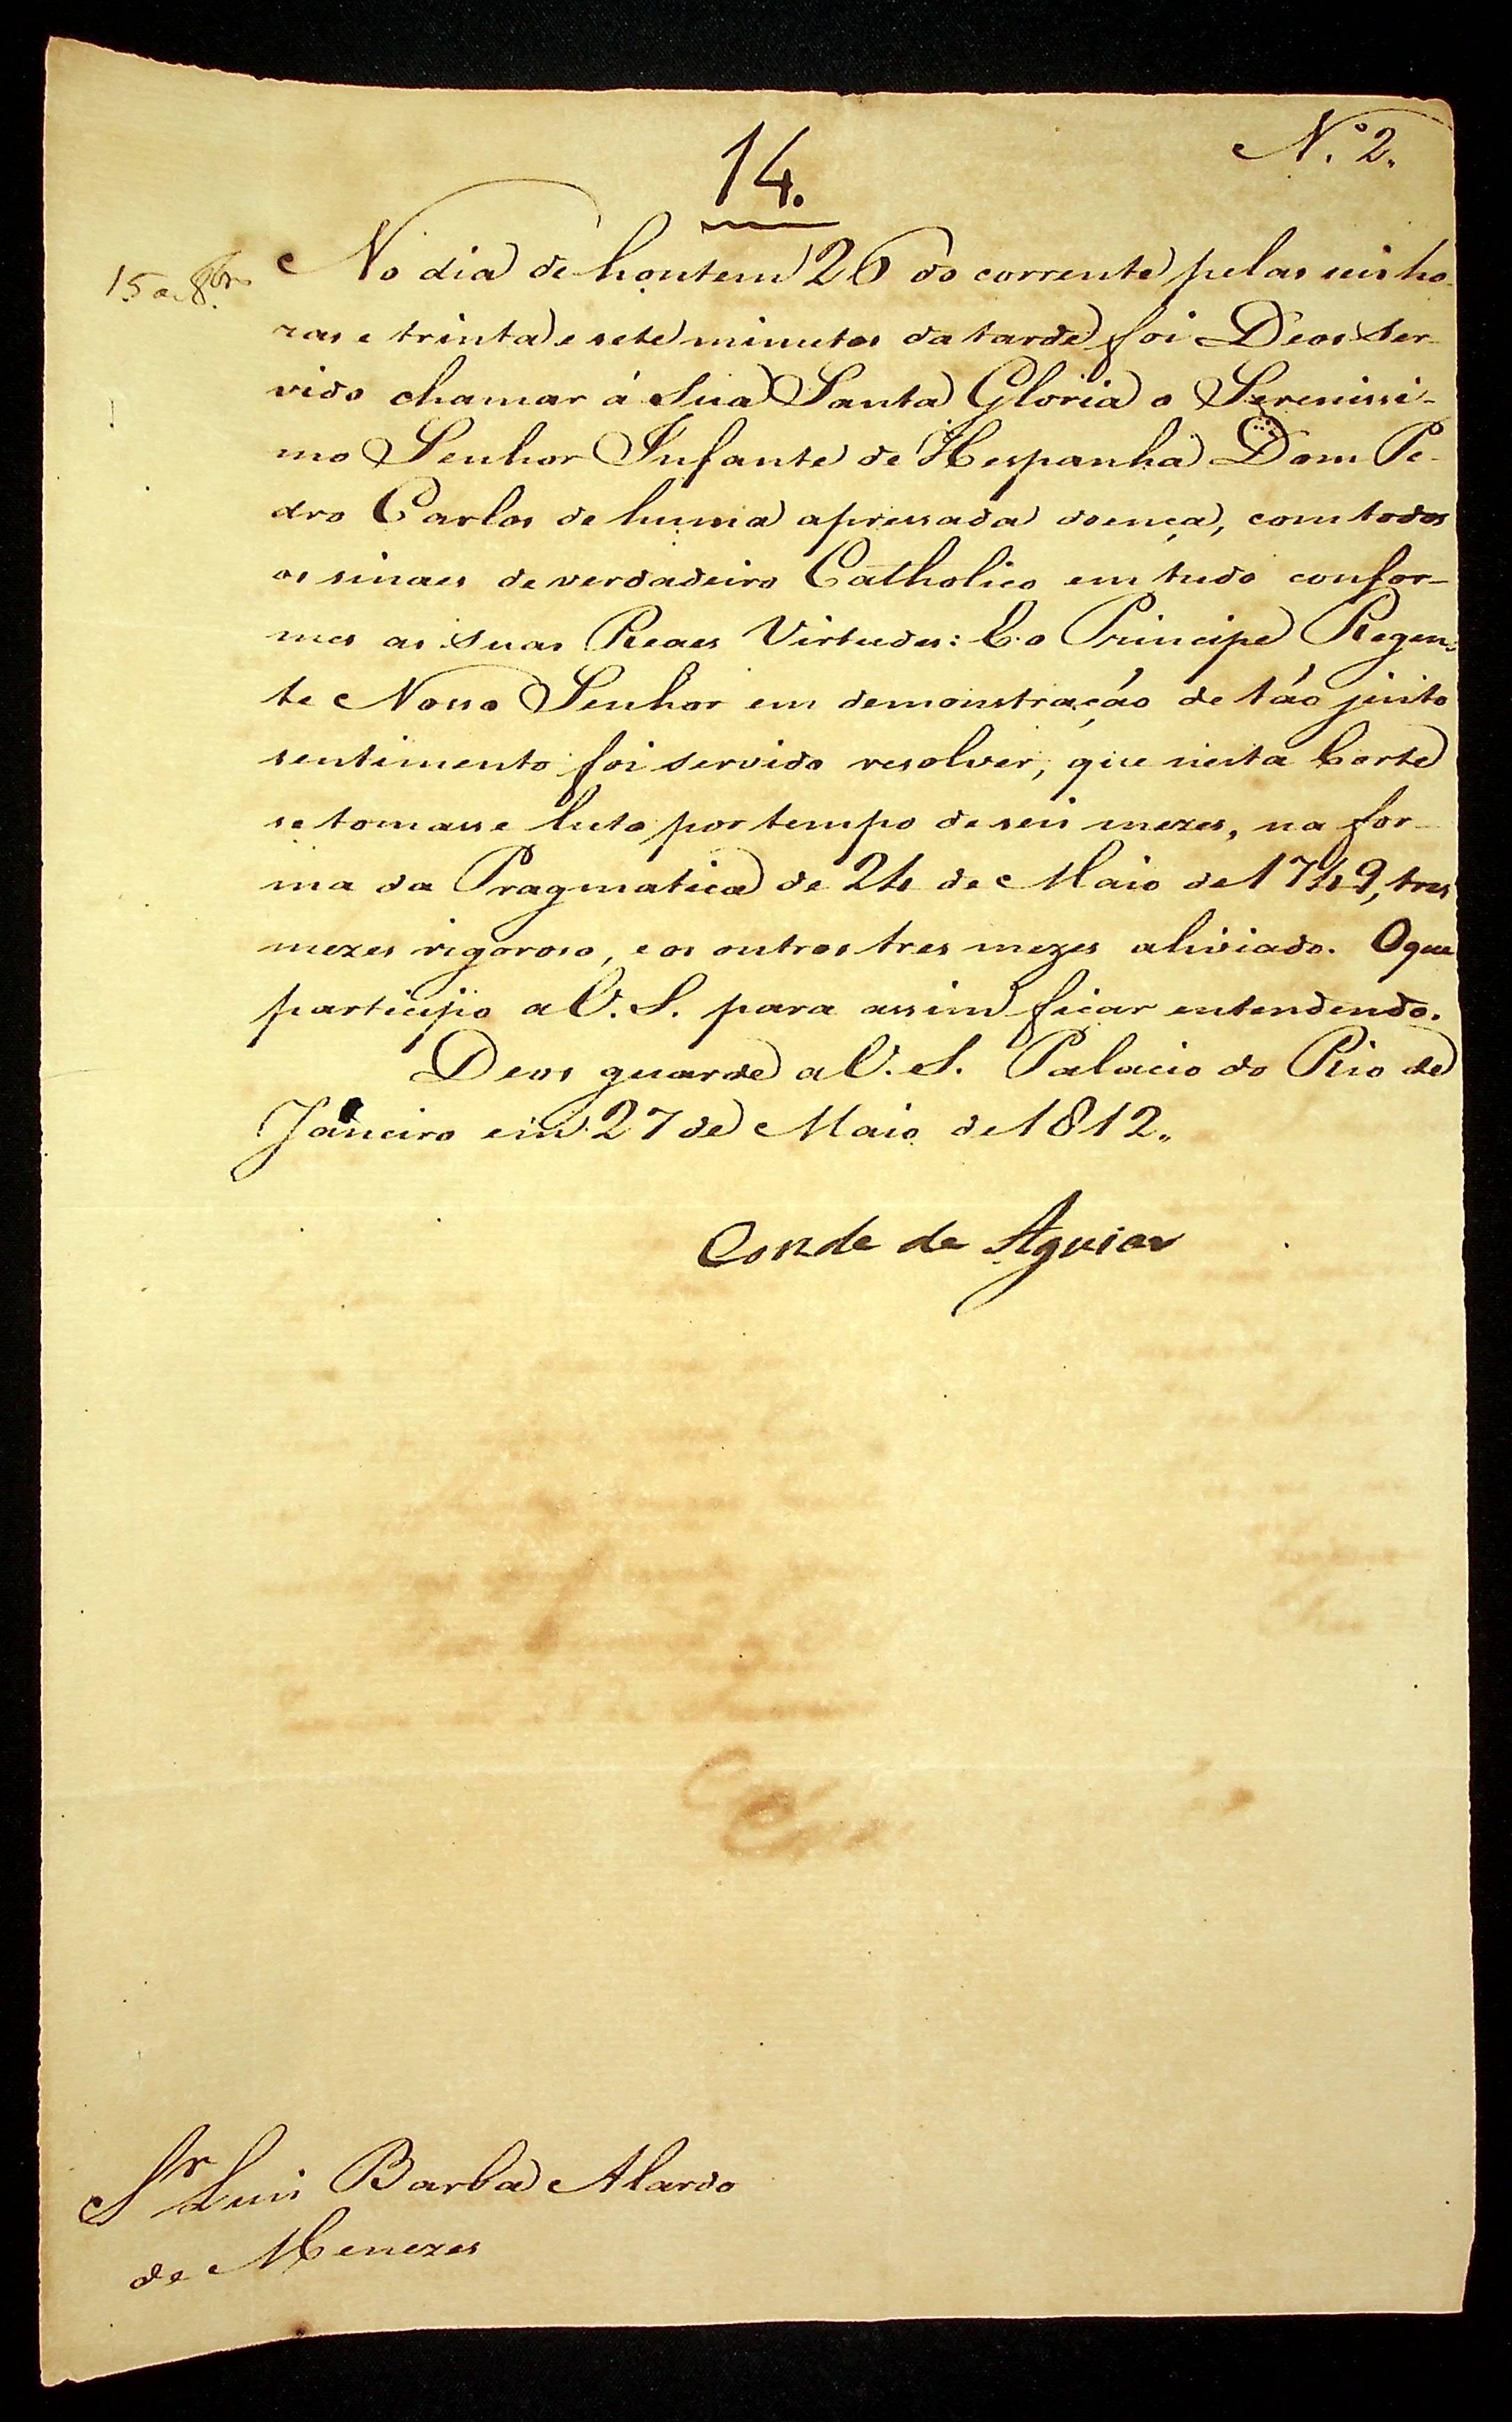 N.º 2.
14.
15 a 8bro
No dia de hontem 26 do corrente pelas seis ho-
ras e trinta e sete minutos da tarde foi Deos ser-
vido chamar á Sua Santa Gloria o Serenissi-
mo Senhor Infante de Hespanha Dom Pe-
dro Carlos de huma apressada doença, com todos
os sinaes de verdadeiro Catholico em tudo confor-
mes as suas Reaes Virtudes: E o Principe Regen-
te Nosso Senhor em demonstração de tão justo
sentimento foi servido resolver, que nesta Corte
se tomasse luto por tempo de seis mezes, na for-
ma da Pragmatica de 24 de Maio de 1749, tres
mezes rigoroso, e os outros tres mezes aliviado. O que
participo a V. S. para assim ficar entendendo.
Deos guarde a V. S. Palacio do Rio de
Janeiro em 27 de Maio de 1812.
Conde de Aguiar
Sr Luis Barba Alardo
de Menezes